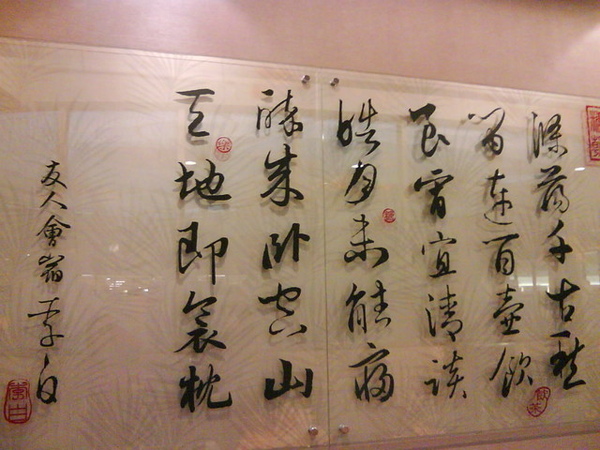 滌蕩千古愁
留連百壺飲
良宵宜清談
皓月未能寢
醉來臥空山
天地即衾枕
友人會宿 李白